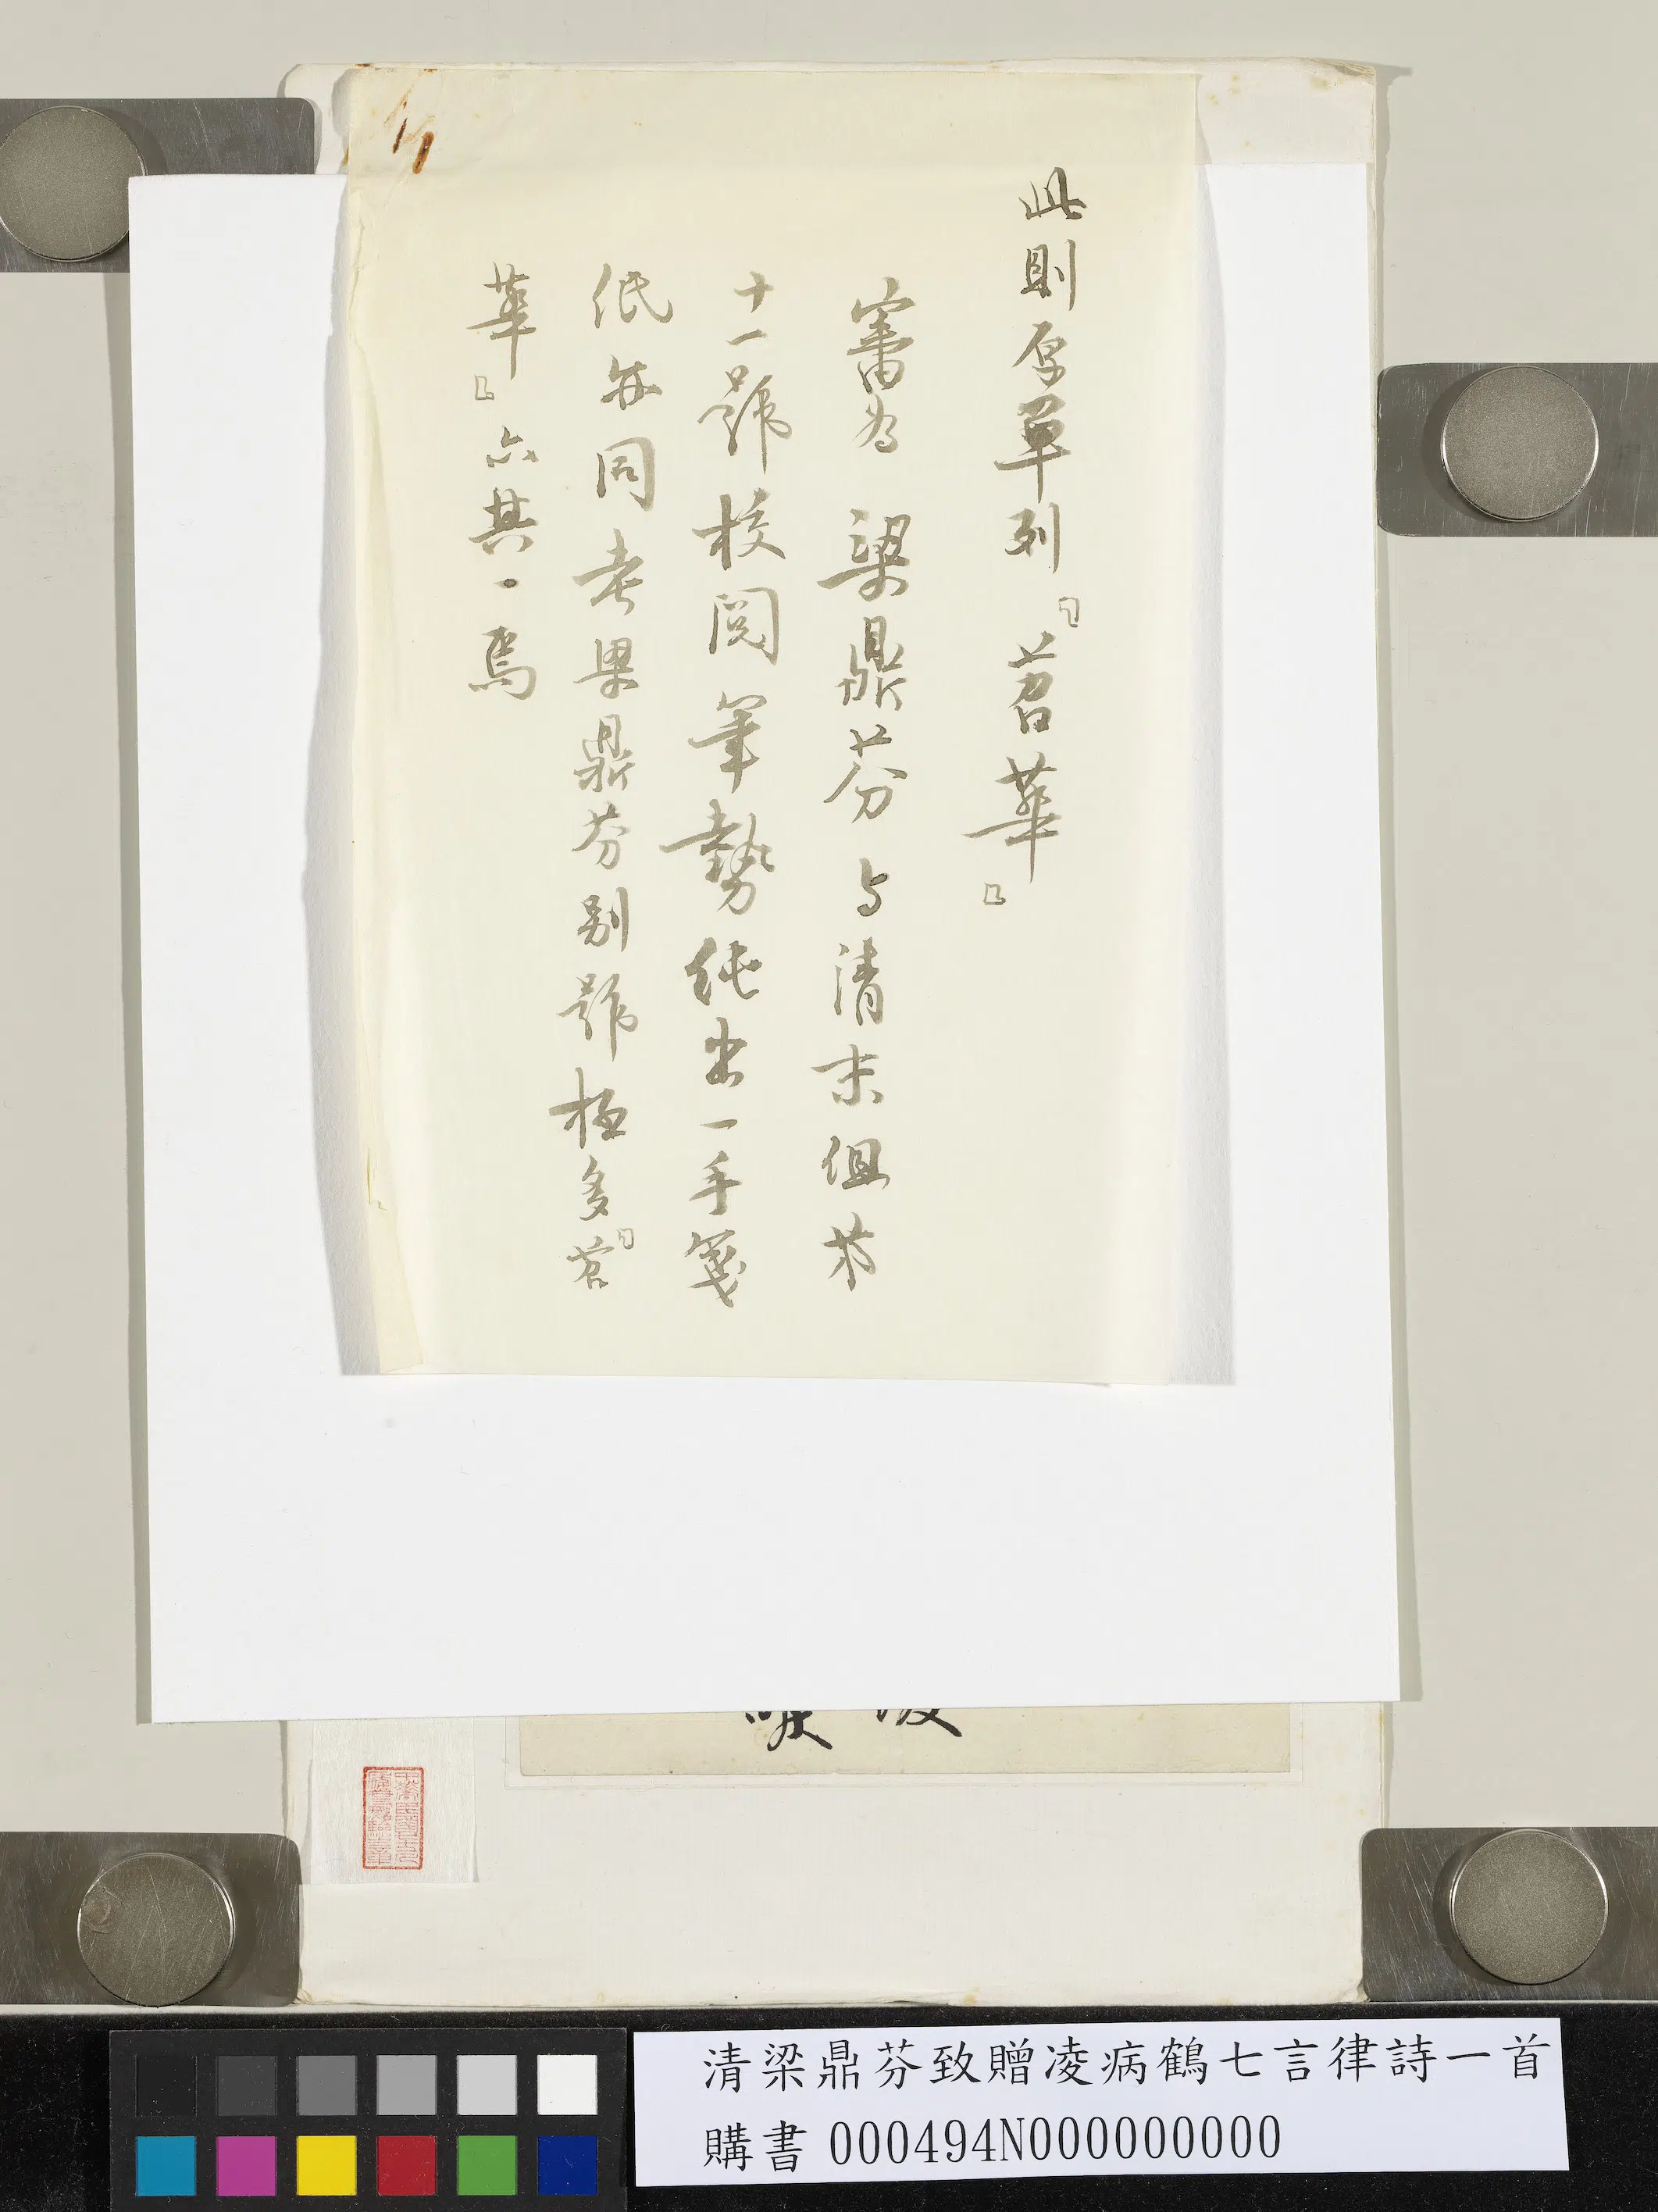 此則原單列「苕華」
審為梁鼎芬与清末組第
十一號校閱筆勢純出一手箋
紙亦同考梁鼎芬別號極多「苕
華」亦其一焉
清梁鼎芬致贈凌病鶴七言律詩一首
購書 000494N000000000